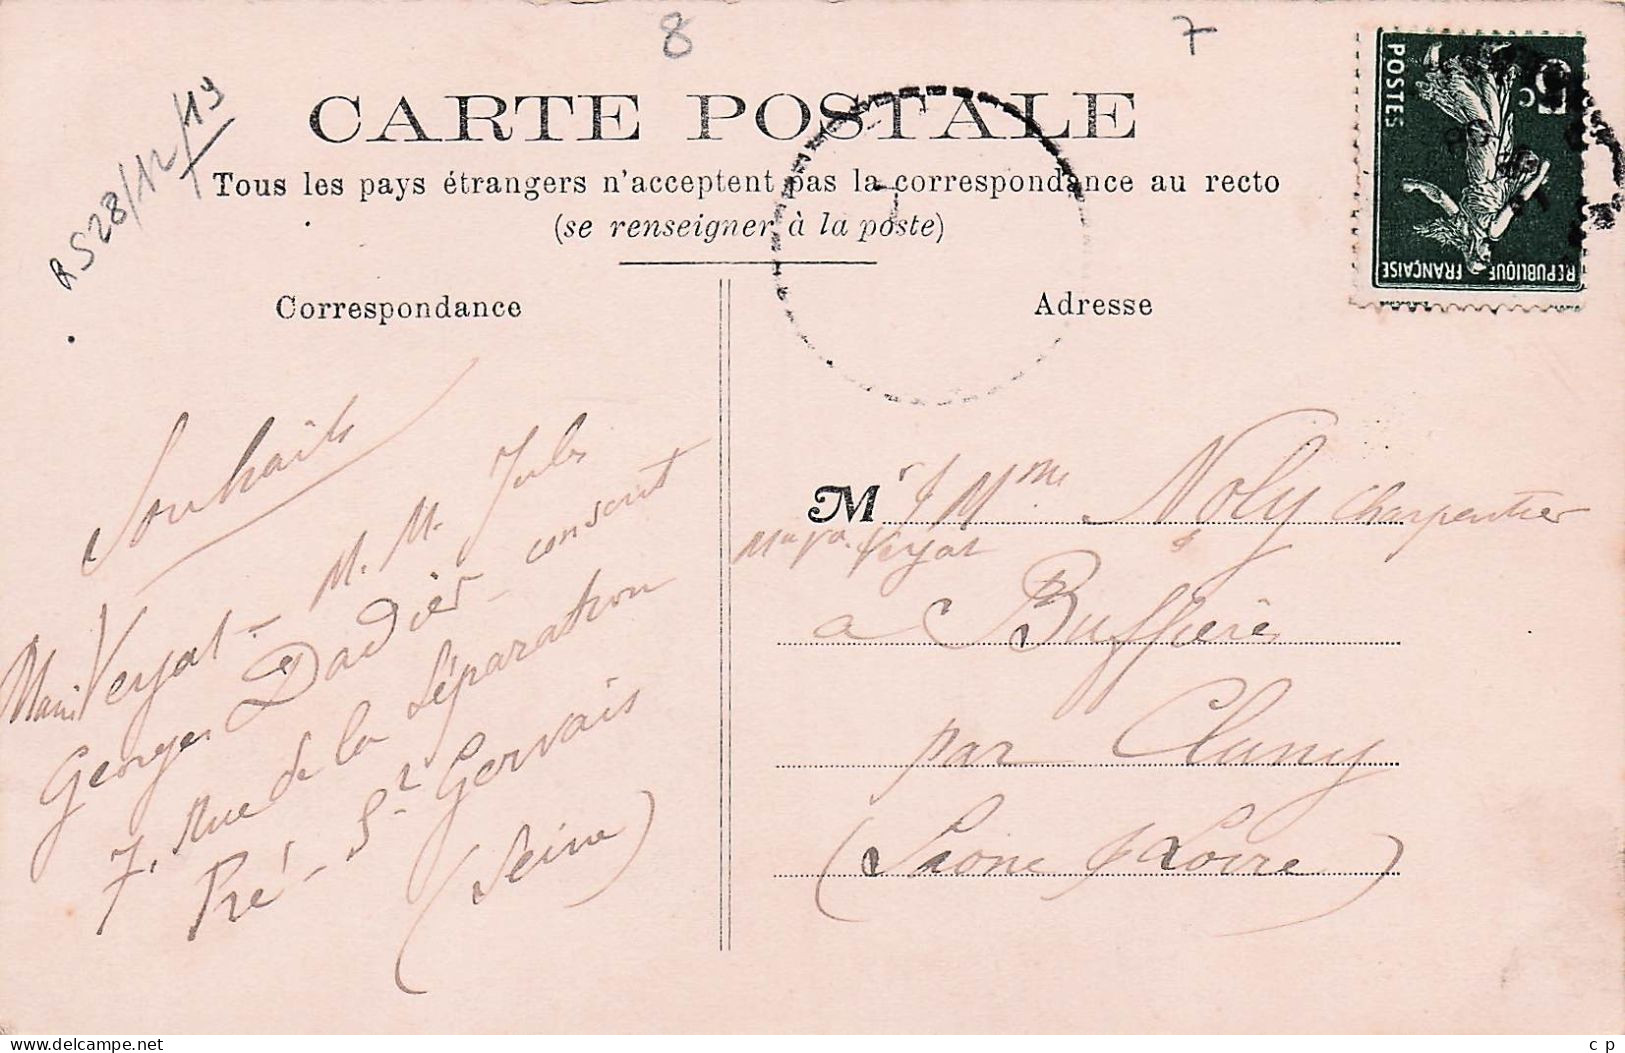 8
7
R 528/12/19
CARTE POSTALE
Tous les pays étrangers n'acceptent pas la correspondance au recto
(se renseigner à la poste)
Correspondance
Souhaits
Marie Veryat - M. M. Jules
Georges Dadier - conscrit
7, Rue de la Séparation
Pré-St Gervais
(Seine)
Adresse
Mr & Mme Noly Charpentier
Veryat
a Buffière
par Cluny
(Saone & Loire)
5c
POSTES
REPUBLIQUE FRANÇAISE
www.delcampe.net
c p